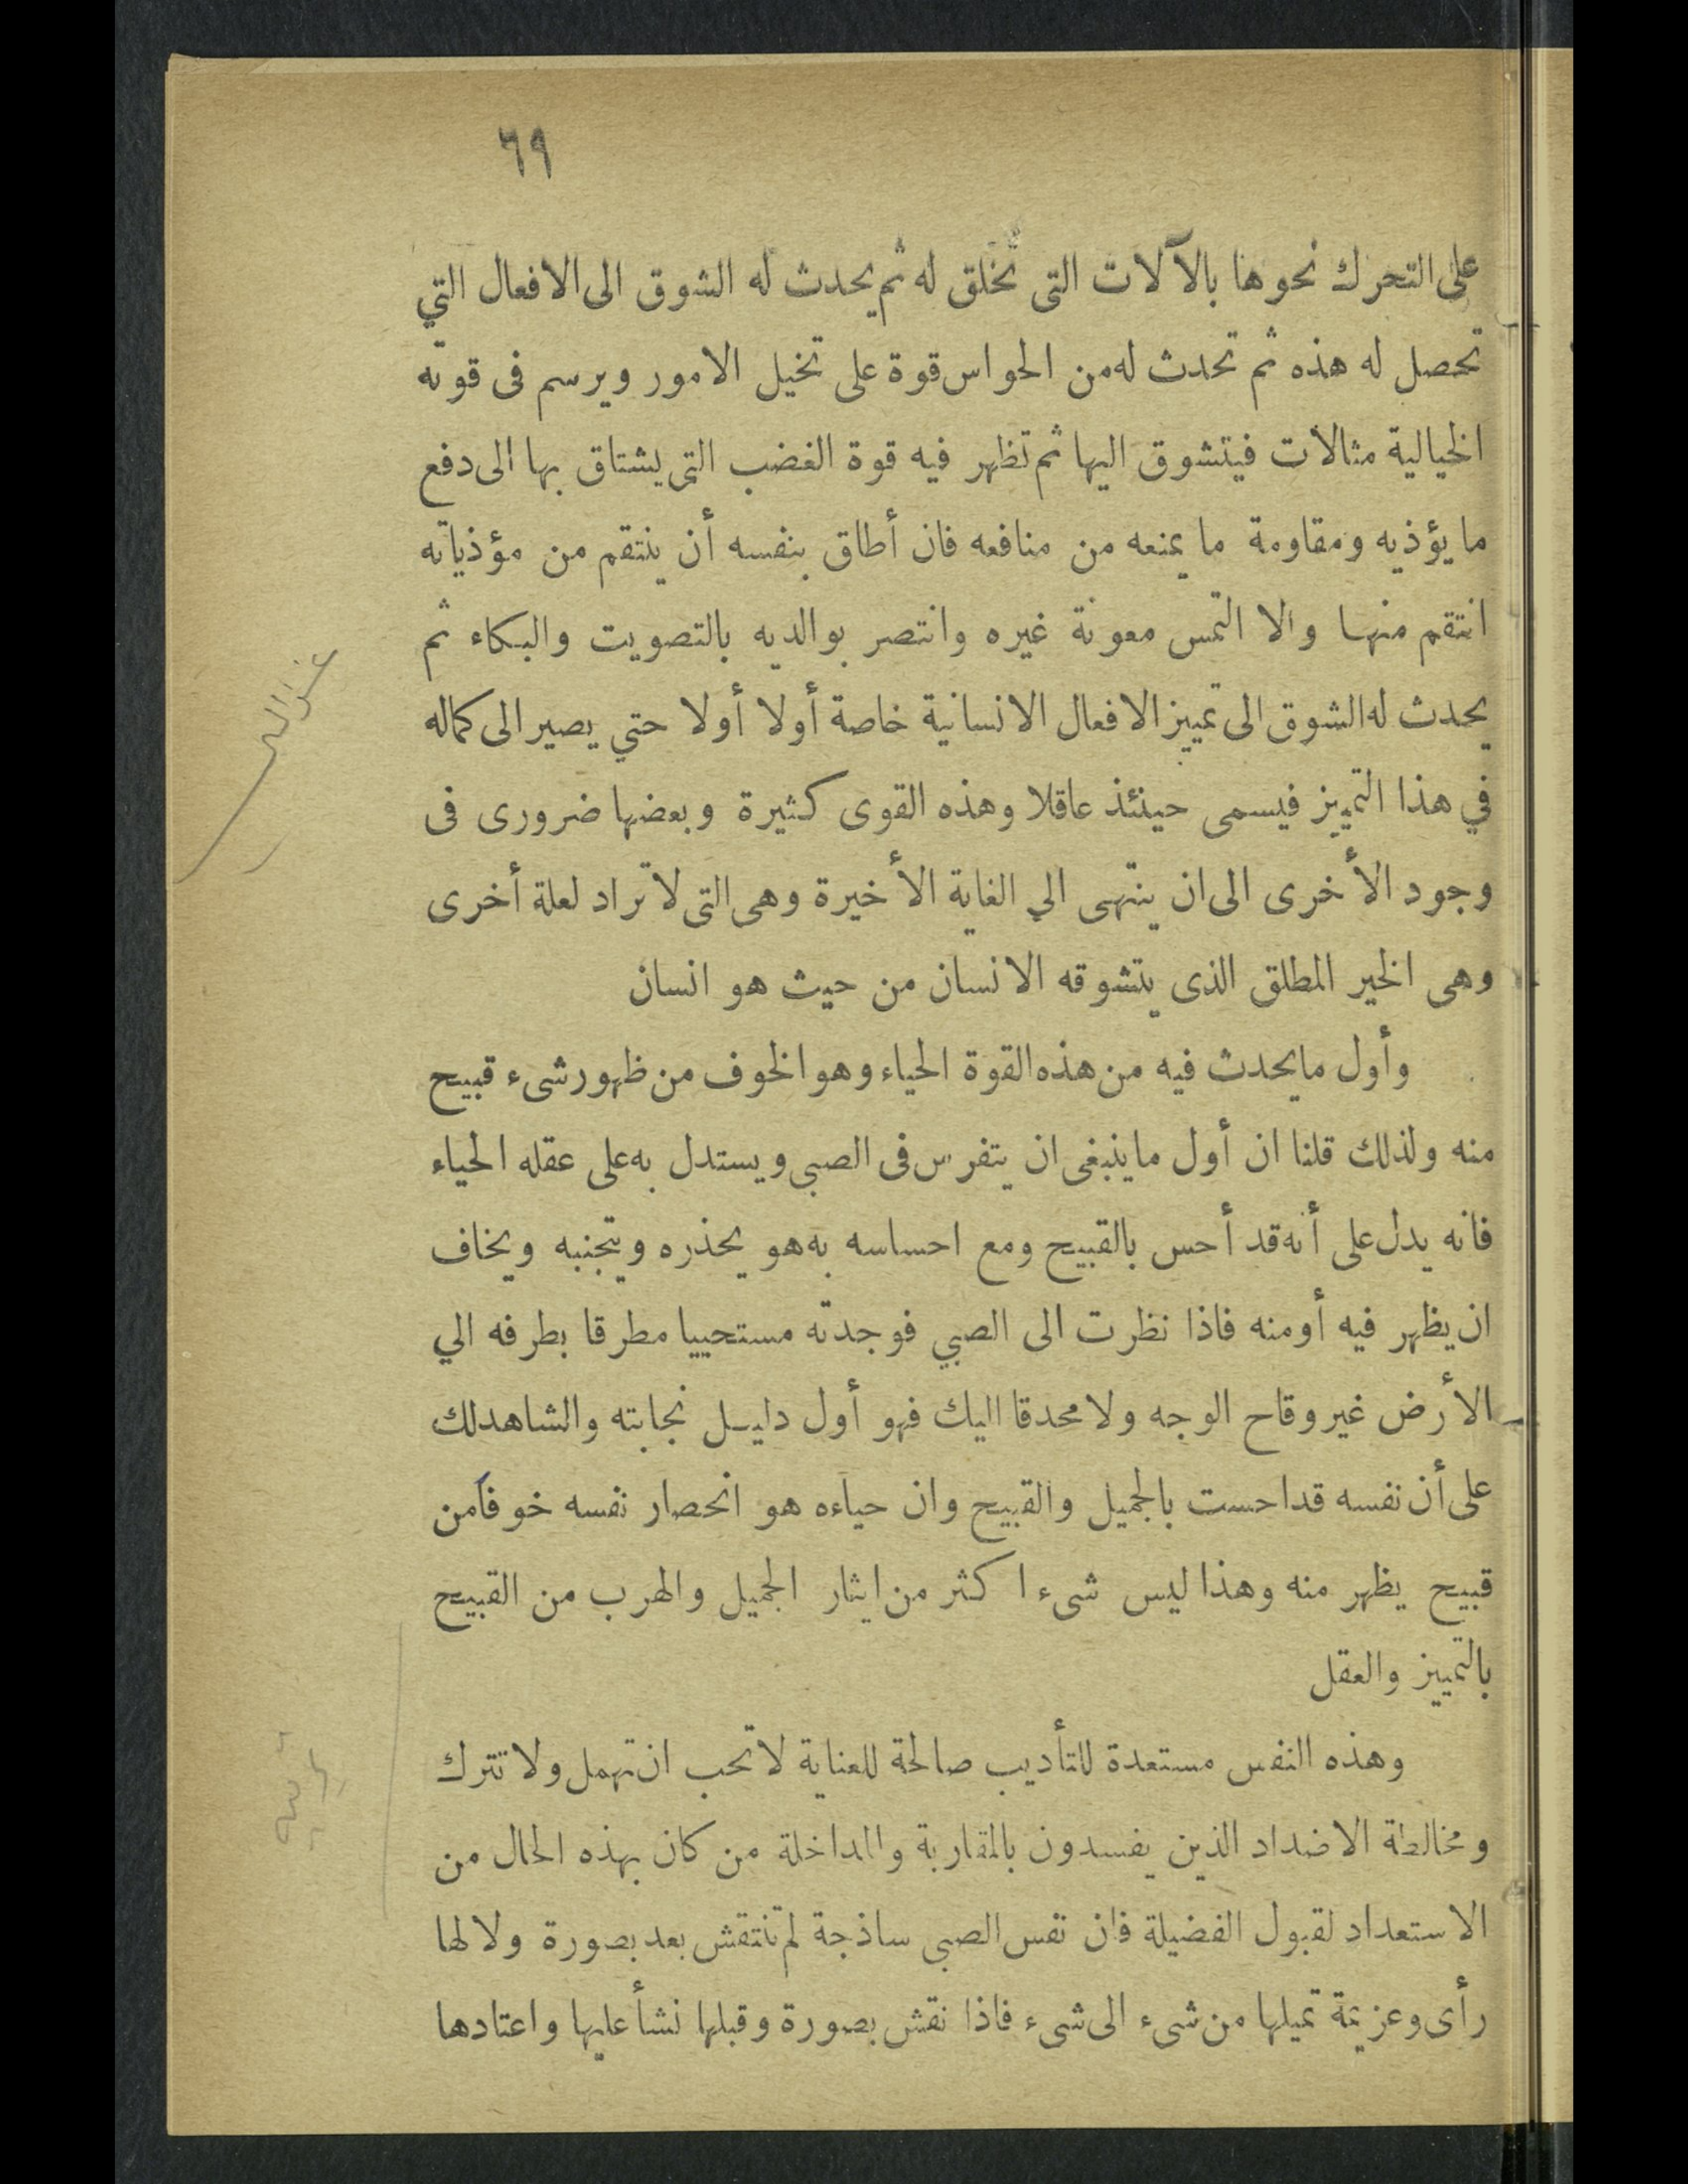 ٦٩
على التحرك نحوها بالآلات التى تخلق له ثم يحدث له الشوق الى الافعال التي
تحصل له هذه ثم تحدث له من الحواس قوة على تخيل الامور ويرسم فى قوته
الخيالية مثالات فيتشوق اليها ثم تظهر فيه قوة الغضب التى يشتاق بها الى دفع
ما يؤذيه ومقاومة ما يمنعه من منافعه فان أطاق بنفسه أن ينتقم من مؤذياته
انتقم منها والا التمس معونة غيره وانتصر بوالديه بالتصويت والبكاء ثم
يحدث له الشوق الى تمييز الافعال الانسانية خاصة أولا أولا حتي يصير الى كماله
في هذا التمييز فيسمى حينئذ عاقلا وهذه القوى كثيرة وبعضها ضرورى فى
وجود الأخرى الى ان ينتهى الي الغاية الأخيرة وهى التى لا تراد لعلة أخرى
وهى الخير المطلق الذى يتشوقه الانسان من حيث هو انسان
وأول ما يحدث فيه من هذه القوة الحياء وهو الخوف من ظهور شىء قبيح
منه ولذلك قلنا ان أول ما ينبغى ان يتفرس فى الصبى ويستدل به على عقله الحياء
فانه يدل على أنه قد أحس بالقبيح ومع احساسه به هو يحذره ويتجنبه ويخاف
ان يظهر فيه أو منه فاذا نظرت الى الصبي فوجدته مستحييا مطرقا بطرفه الي
الأرض غير وقاح الوجه ولا محدقا اليك فهو أول دليل نجابته والشاهد لك
على أن نفسه قد احست بالجميل والقبيح وان حياءه هو انحصار نفسه خوفا من
قبيح يظهر منه وهذا ليس شىء اكثر من ايثار الجميل والهرب من القبيح
بالتمييز والعقل
وهذه النفس مستعدة للتأديب صالحة للعناية لا تحب ان تهمل ولا تترك
ومخالطة الاضداد الذين يفسدون بالمقاربة والمداخلة من كان بهذه الحال من
الاستعداد لقبول الفضيلة فان نفس الصبى ساذجة لم تنتقش بعد بصورة ولا لها
رأى وعزيمة تميلها من شىء الى شىء فاذا نقش بصورة وقبلها نشأ عليها واعتادها